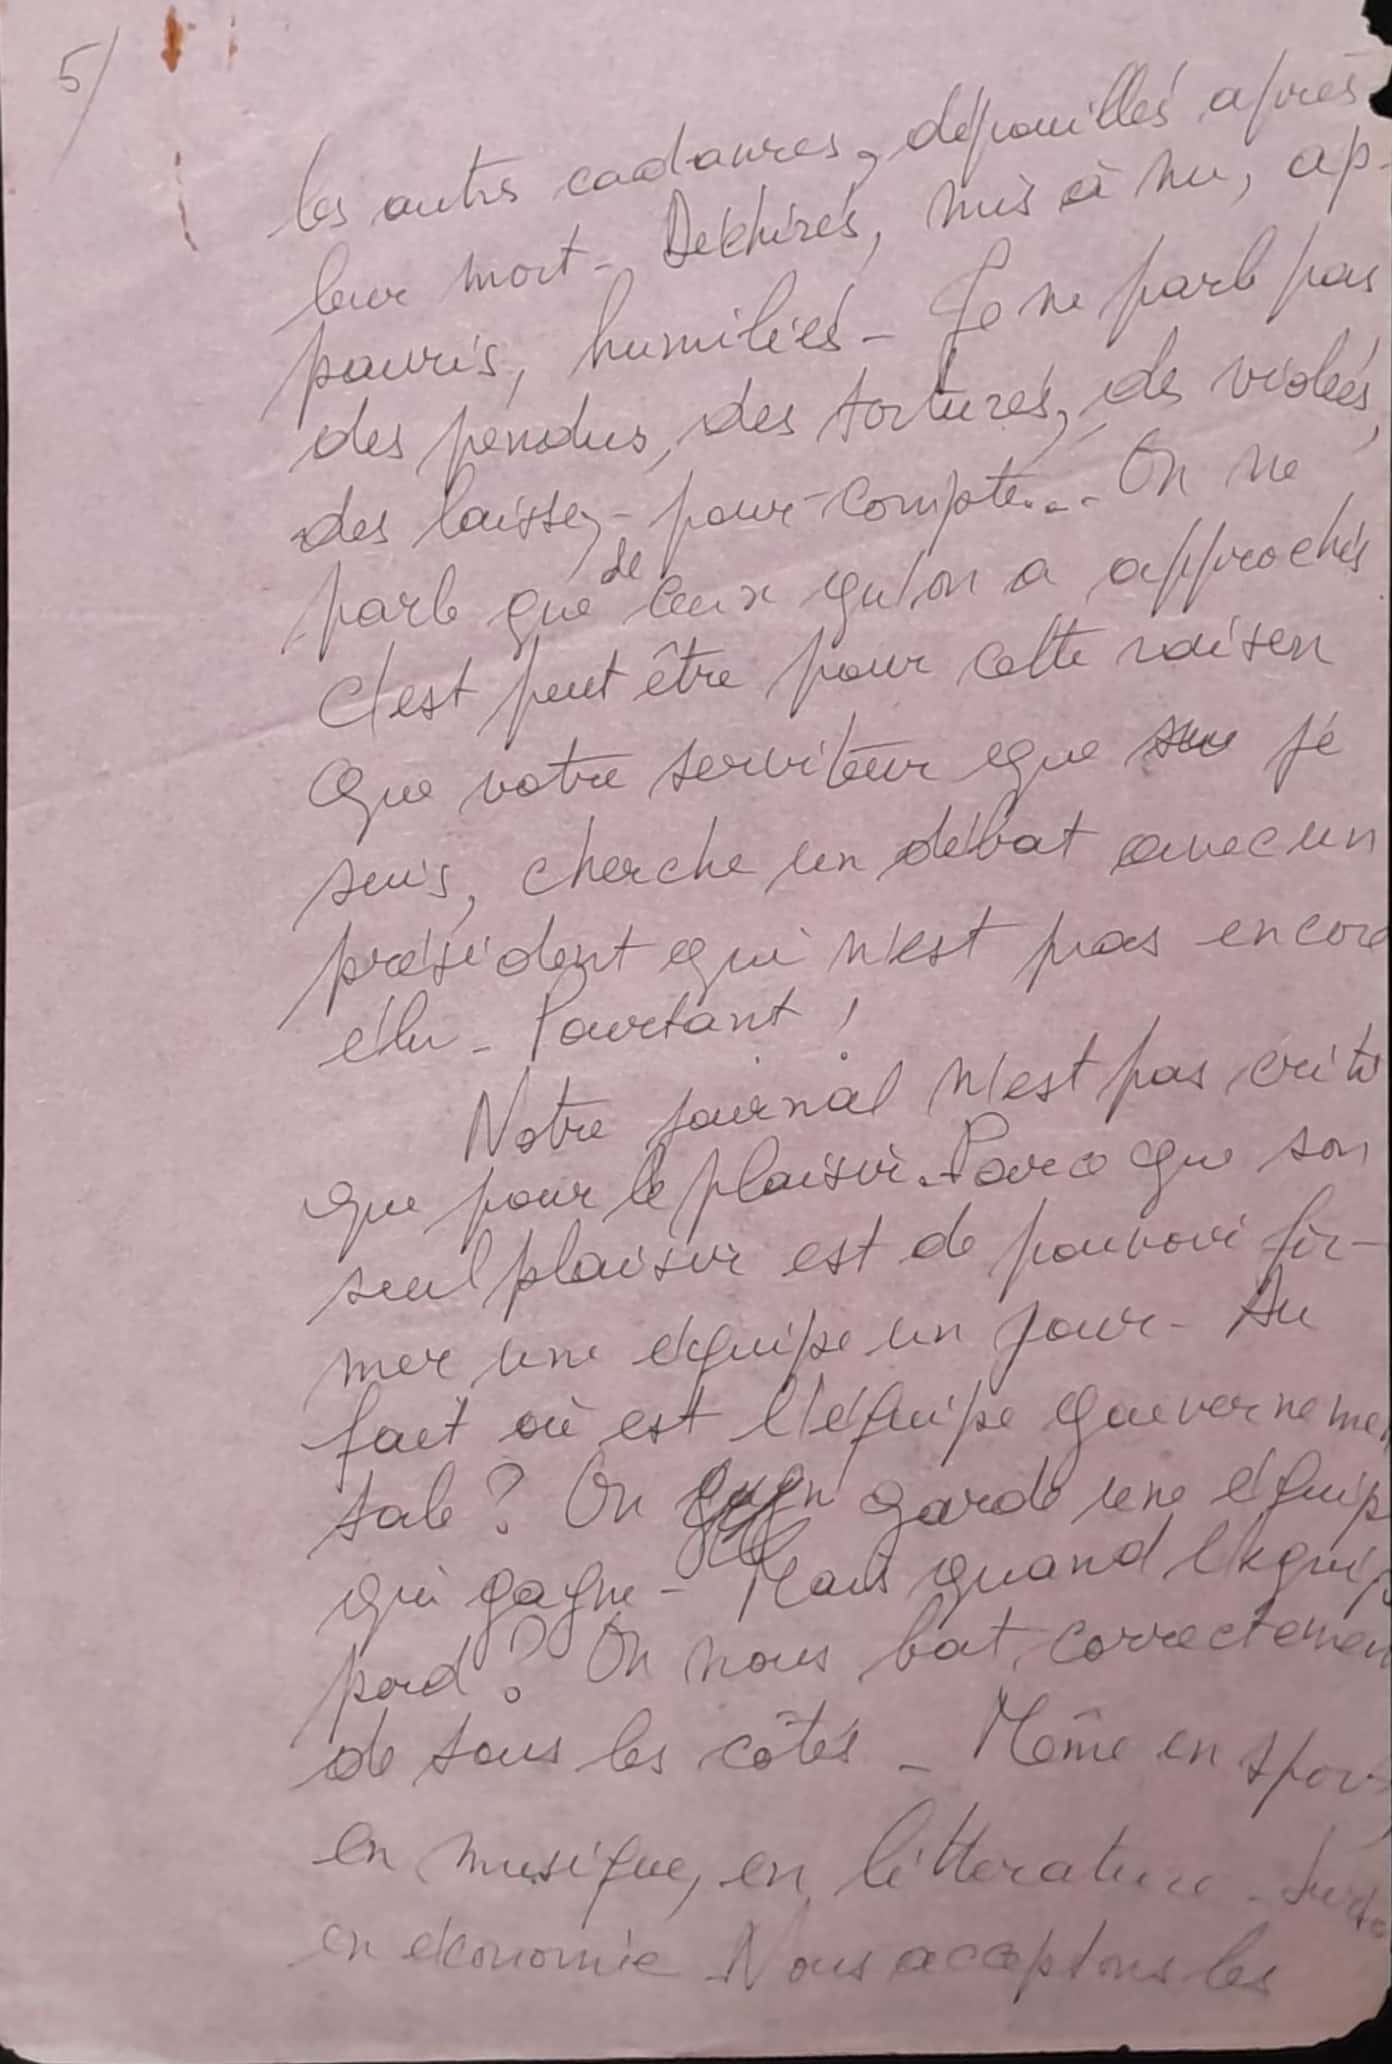 5/
les autres cadavres, dépouillés après
leur mort - Déchirés, mis à nu, ap-
pauvris, humiliés - Je ne parle pas
des pendus, des torturés, des violées,
des laissez-pour-compte... On ne
parle que de ceux qu'on a approchés
C'est peut être pour cette raison
que votre serviteur que je
suis, cherche un débat avec un
président qui n'est pas encore
élu - Pourtant !
Notre journal n'est pas écrit
que pour le plaisir. Parce que son
seul plaisir est de pouvoir for-
mer une équipe un jour - Au
fait où est l'équipe gouvernemen
tale ? On garde une équip
qui gagne - Mais quand l'équip
perd ? On nous bat correctemen
de tous les côtés - Même en spor
en musique, en littérature -
en économie - Nous acceptons les